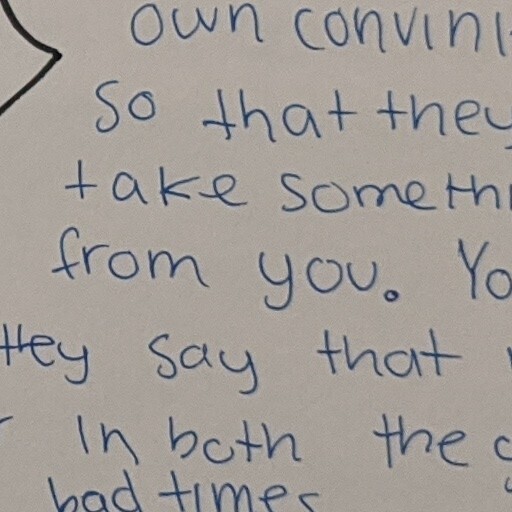 own convini
So that they
take somethi
from you. Yo
they say that
in both the
bad times